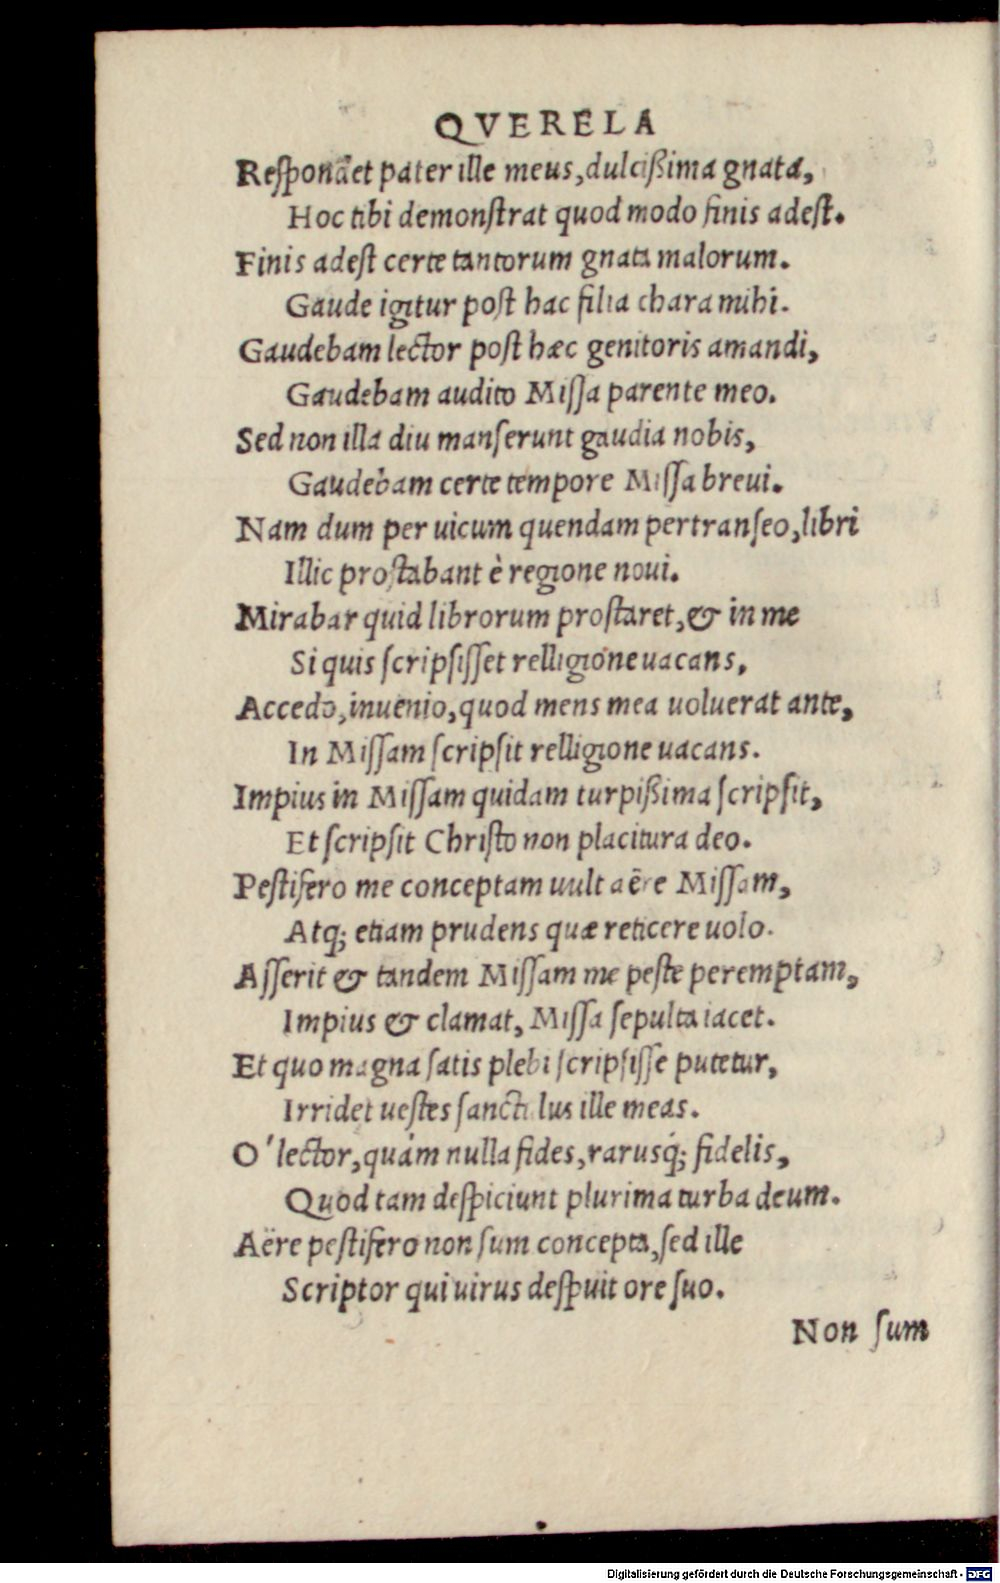 QVERELA
Respondet pater ille meus, dulcißima gnata,
Hoc tibi demonſtrat quod modo finis adeſt.
Finis adeſt certe tantorum gnata malorum.
Gaude igitur poſt hac filia chara mihi.
Gaudebam lector poſt hæc genitoris amandi,
Gaudebam audito Miſſa parente meo.
Sed non illa diu manſerunt gaudia nobis,
Gaudebam certe tempore Miſſa breui.
Nam dum per uicum quendam pertranſeo, libri
Illic proſtabant è regione noui.
Mirabar quid librorum proſtaret, & in me
Si quis ſcripſiſſet relligione uacans,
Accedo, inuenio, quod mens mea uoluerat ante,
In Miſſam ſcripſit relligione uacans.
Impius in Miſſam quidam turpißima ſcripſit,
Et ſcripſit Chriſto non placitura deo.
Peſtifero me conceptam uult aëre Miſſam,
Atq; etiam prudens quæ reticere uolo.
Aſſerit & tandem Miſſam me peſte peremptam,
Impius & clamat, Miſſa ſepulta iacet.
Et quo magna ſatis plebi ſcripſiſſe putetur,
Irridet ueſtes ille meas.
O' lector, quàm nulla fides, rarusq́; fidelis,
Quod tam deſpiciunt plurima turba deum.
Aëre peſtifero non ſum concepta, ſed ille
Scriptor qui uirus deſpuit ore ſuo.
Non ſum
Digitalisierung gefördert durch die Deutsche Forschungsgemeinschaft - DFG